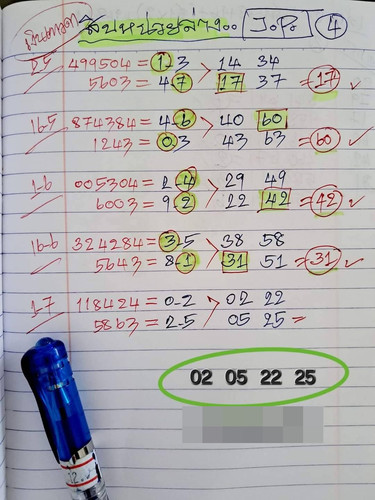 สิบหน่วยล่าง.. J.P. 4
2-5 499504 = 1.3 > 14 34
5603 = 4.7 17 37 = 17 ✓
16-5 874384 = 4.6 > 40 60
1243 = 0.3 43 63 = 60 ✓
1-6 005304 = 2.4 > 29 49
6003 = 9.2 22 42 = 42 ✓
16-6 324284 = 3-5 > 38 58
5643 = 8-1 31 51 = 31 ✓
1-7 118424 = 0-2 > 02 22
5863 = 2-5 05 25 =
02 05 22 25